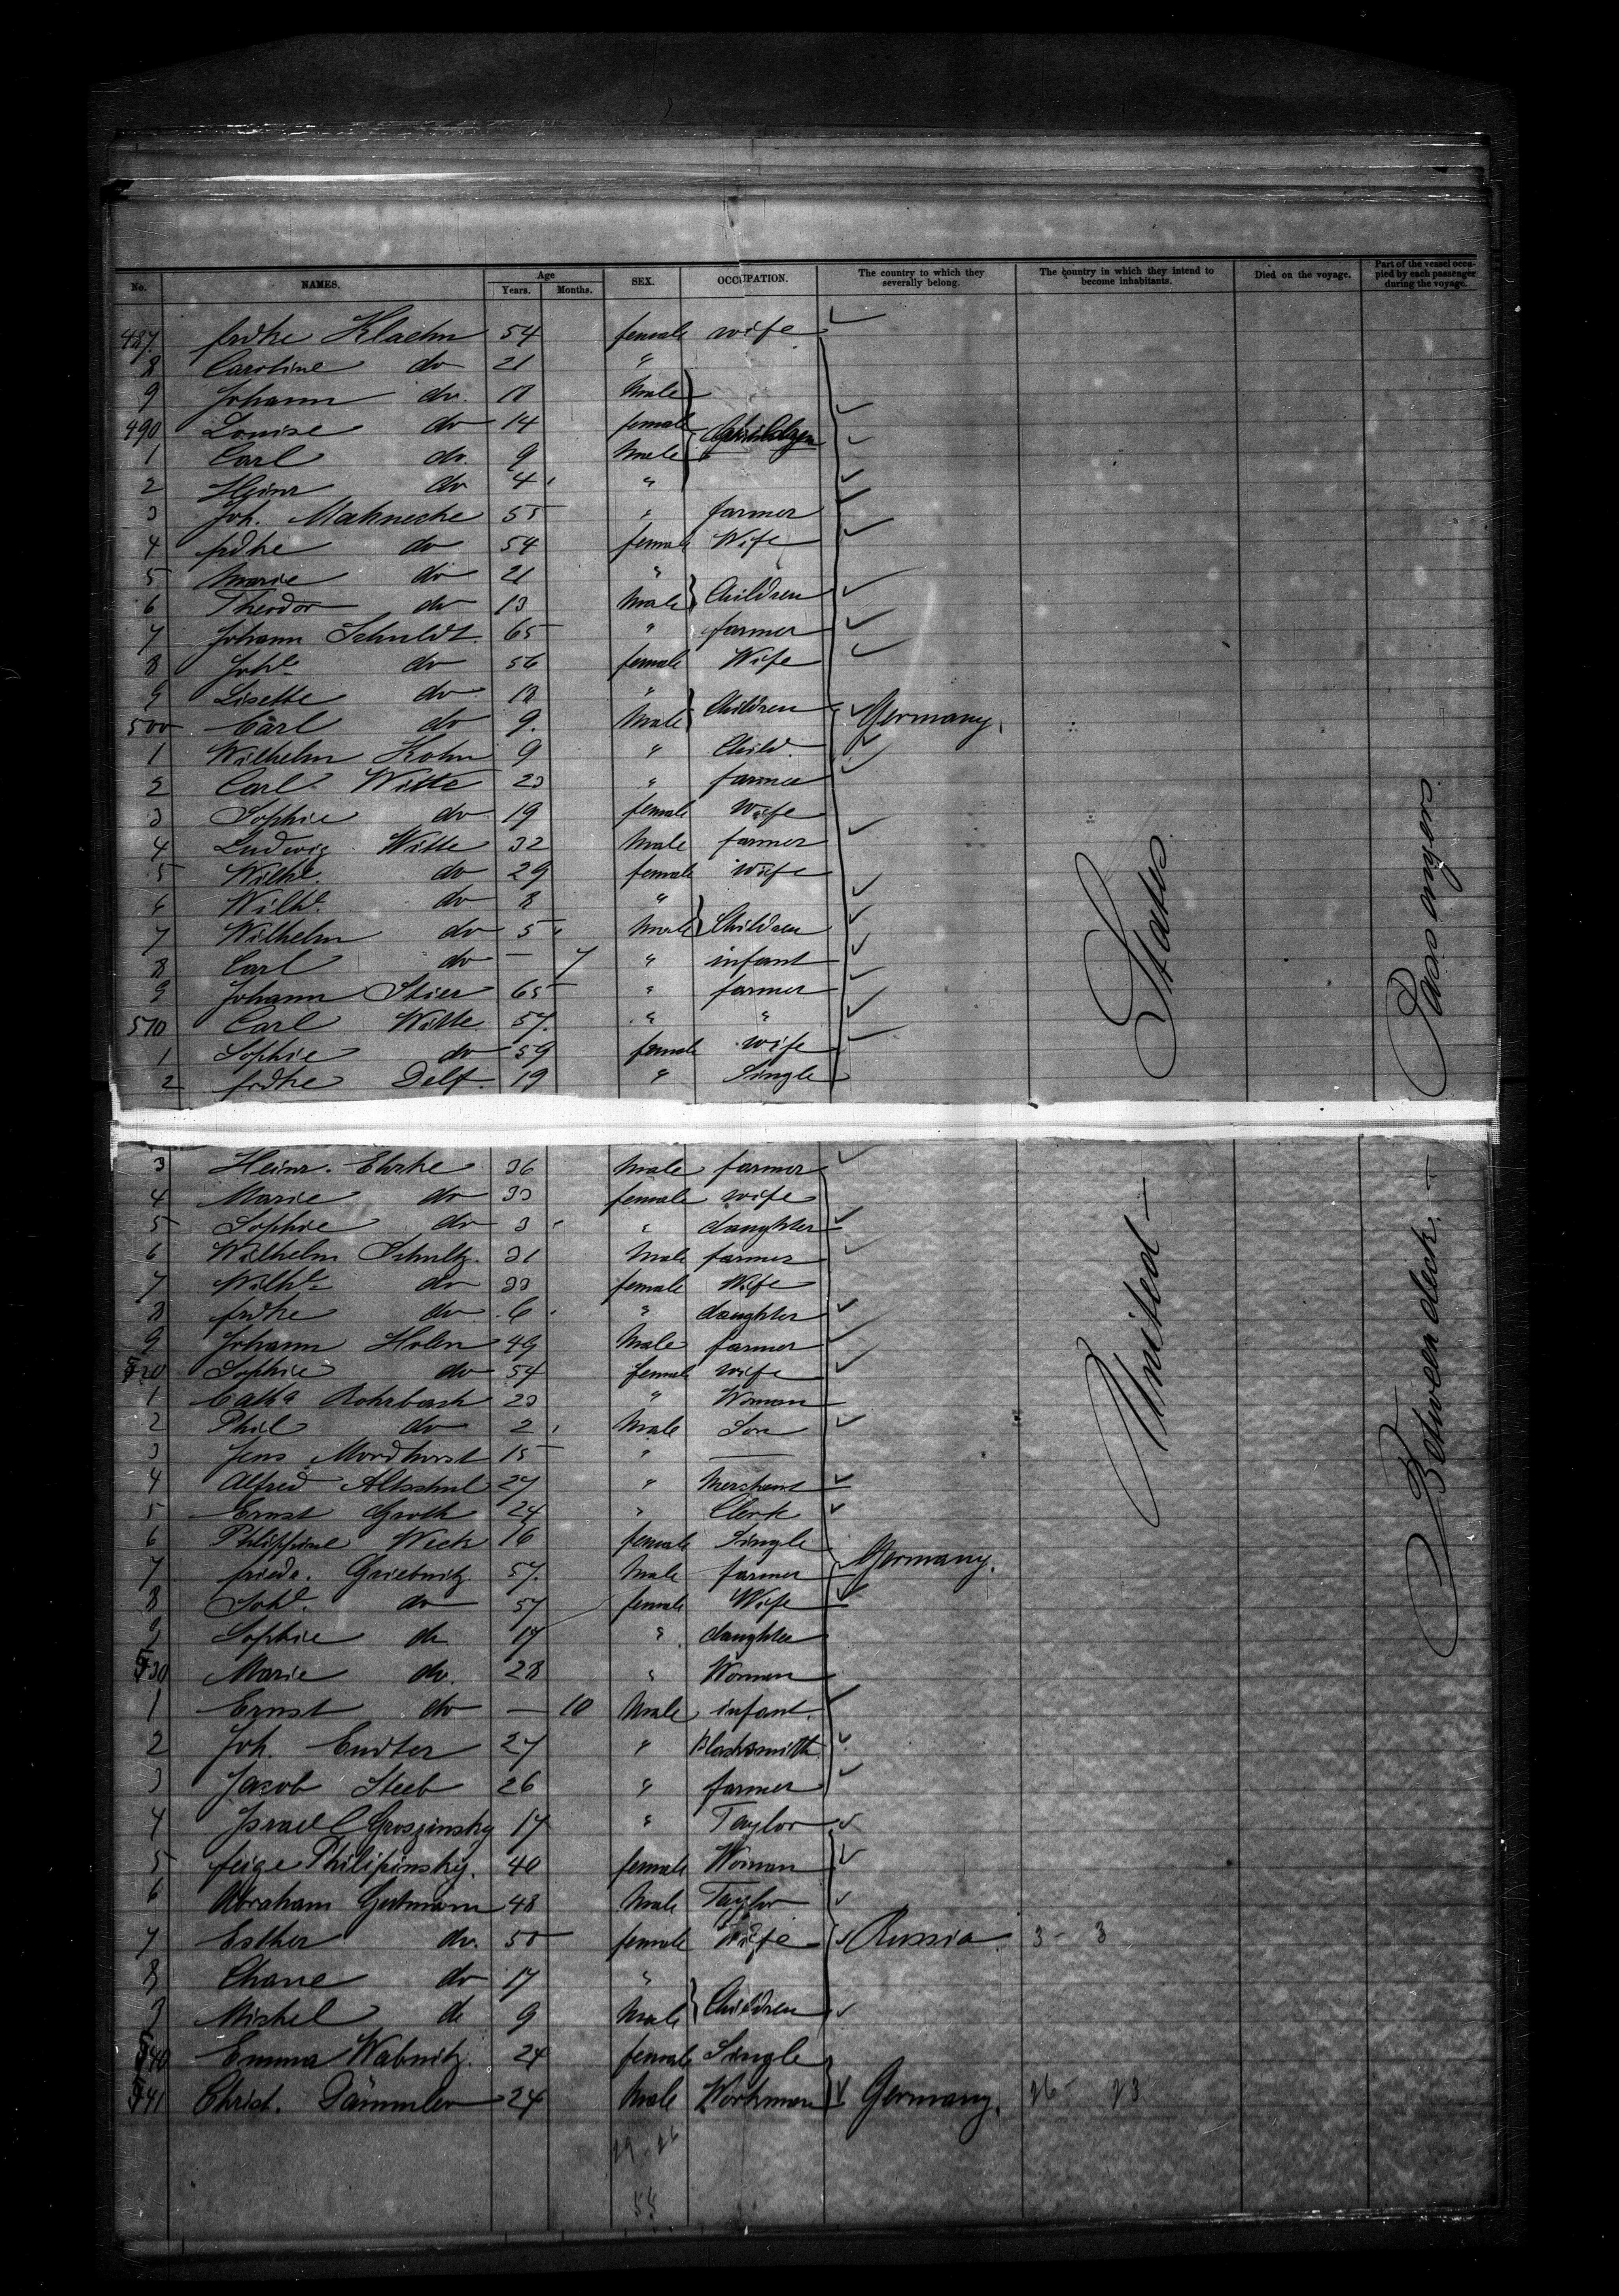 No. NAMES. Age Years. Months. SEX. OCCUPATION. The country to which they severally belong. The country in which they intend to become inhabitants. Died on the voyage. Part of the vessel occupied by each passenger during the voyage.
487. Fridke Klaehn 54 female wife
8 Caroline do 21 "
9 Johann do. 18 Male
490 Louise do 14 female
1 Carl do. 9 Male
2 Heinr do 4 "
3 Joh. Mahnecke 55 " farmer
4 fridke do 54 female Wife
5 Marie do 21 "
6 Theodor do 13 Male Children
7 Johann Schuldt. 65 " farmer
8 Joh. do 56 female Wife
9 Lisette do 18 "
500 Carl do 9. Male Children Germany.
1 Wilhelm Kohn 9 " Child
2 Carl Witte 23 " farmer
3 Sophie do 19 female wife
4 Ludwig Witte 32 Male farmer
5 Wilhe. do 29 female wife
6 Wilhe. do 8 "
7 Wilhelm do 5 Male Children
8 Carl do — 7 " infant
9 Johann Stier 65 " farmer
510 Carl Witte 57. " "
1 Sophie do 59 female wife
2 fridke Delf. 19 " Single
3 Heinr. Ehrke 36 Male farmer
4 Marie do 33 female wife
5 Sophie do 3 " daughter
6 Wilhelm Schultz. 31 Male farmer
7 Wilhe do 33 female Wife
8 fridke do 6 " daughter
9 Johann Holm 49 Male farmer
520 Sophie do 54 female wife
1 Catha Rohrbach 23 " Woman
2 Phil do 2 Male Son
3 Jens Mordhorst 15 " —
4 Alfred Altschul 27 " Merchant
5 Ernst Groth 24 " Clerk
6 Philippine Weck 16 female Single
7 friedr. Griebnitz. 57. Male farmer Germany.
8 Sohe. do 57 female Wife
9 Sophie do 17 " daughter
530 Marie do. 28 " Woman
1 Ernst do — 10 Male infant.
2 Joh. Endter 27 " Blacksmith
3 Jacob Steeb 26 " farmer
4 Israel Groszinsky 17 " Taylor
5 feige Philipinsky. 40 female Woman
6 Abraham Gutmann 48 Male Taylor
7 Esther do. 50 female Wife Russia. 3 - 3
8 Chane do 17 "
9 Mishel do 9 Male Children
540 Emma Wabnitz. 24 female Single
541 Christ. Dämmler 24 Male Workman Germany. 26 - 23
29 26
55
United States
Between deck. Passengers.